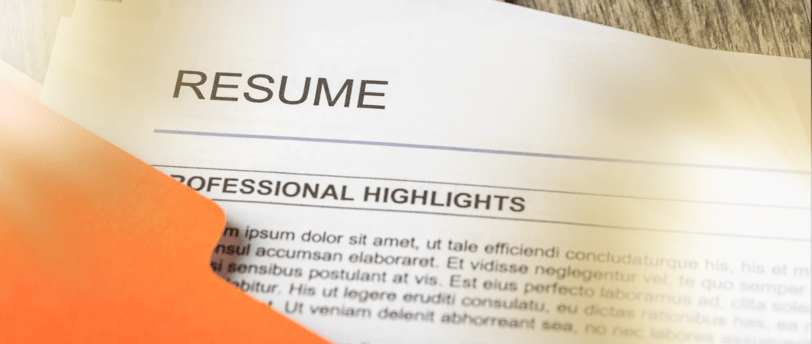 RESUME
ROFESSIONAL HIGHLIGHTS
m ipsum dolor sit amet, ut tale efficiendi concludaturque his, his et m
nsul accumsan elaboraret. Et vidisse neglegentur vel, te quo semper
si sensibus postulant at vis. Est eius perfecto laboramus ad, clita solea
abitur. His ut legere eruditi consulatu, eu dictas rationibus has, ea
Ut veniam delenit abhorreant sea, no nec labores